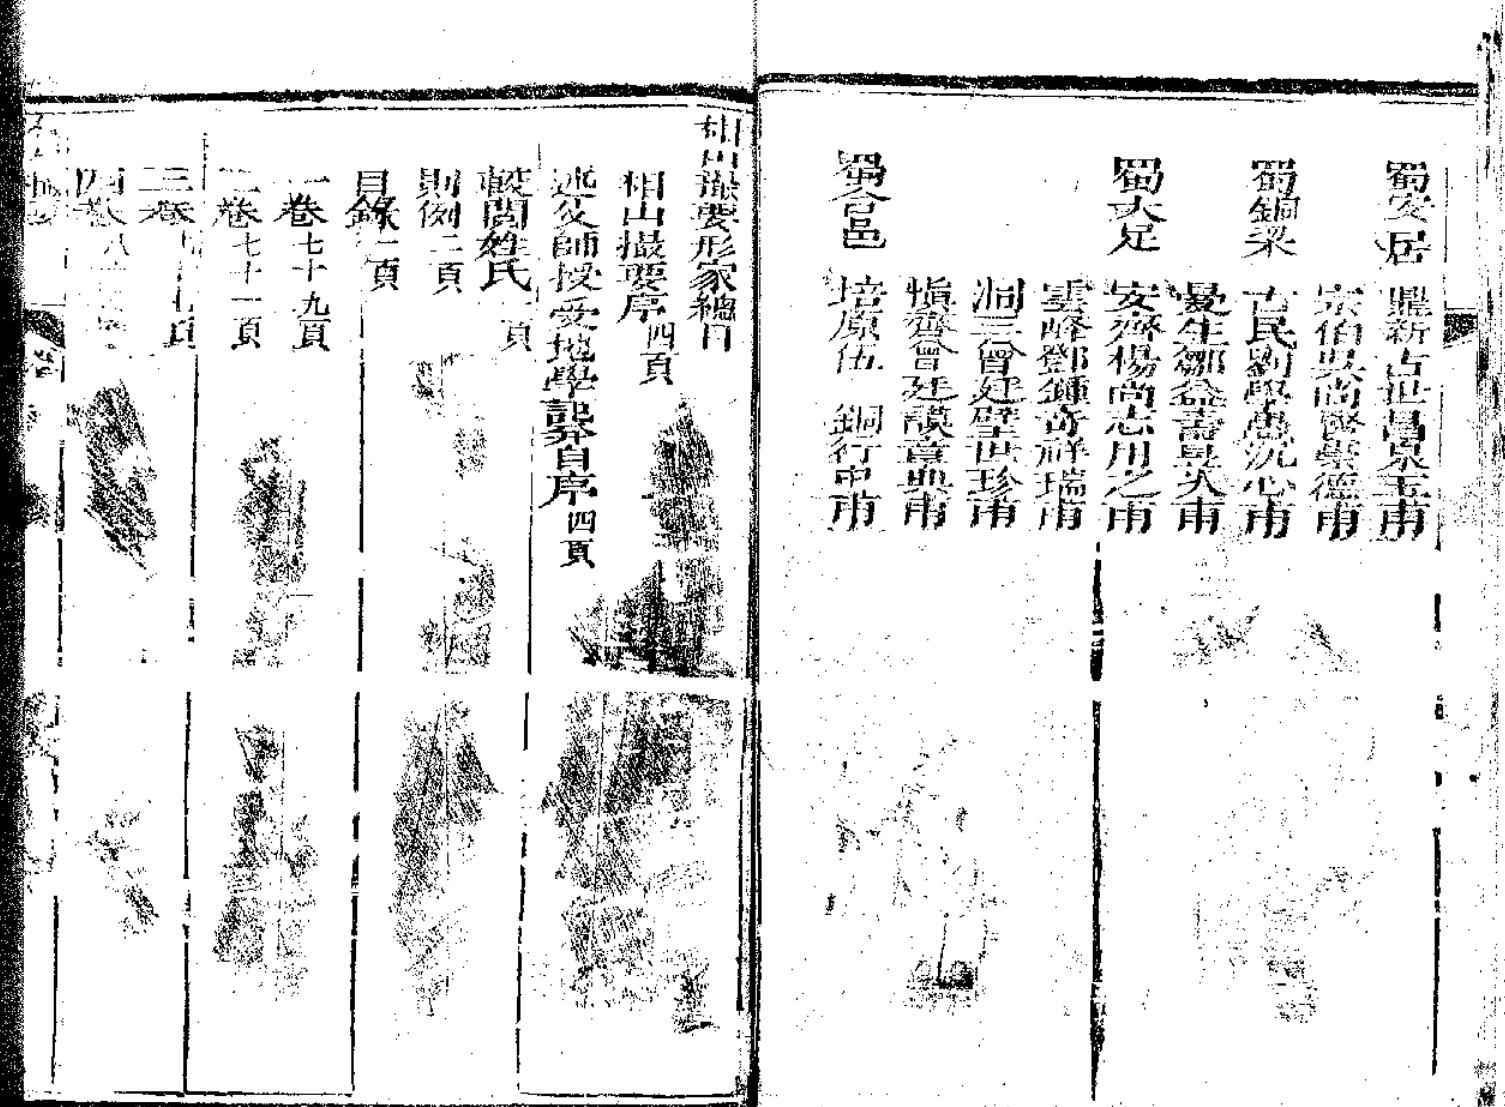 蜀安居 鼎新古世昌泉玉甫
宗伯吳尚賢榮德甫
蜀銅梁 古民劉學憲沉心甫
晏生鄒益壽見大甫
蜀大足 安齊楊尚志用之甫
雲峰鄧鍾奇祥瑞甫
洞三曾廷壁世珍甫
慎齋曾廷謨章典甫
蜀合邑 培原伍 銅行申甫
相山撮要形家總目
相山撮要序四頁
述父師授受地學記莽自序四頁
較閱姓氏一頁
則例二頁
目錄一頁
一卷七十九頁
二卷七十一頁
三卷 頁
四卷八